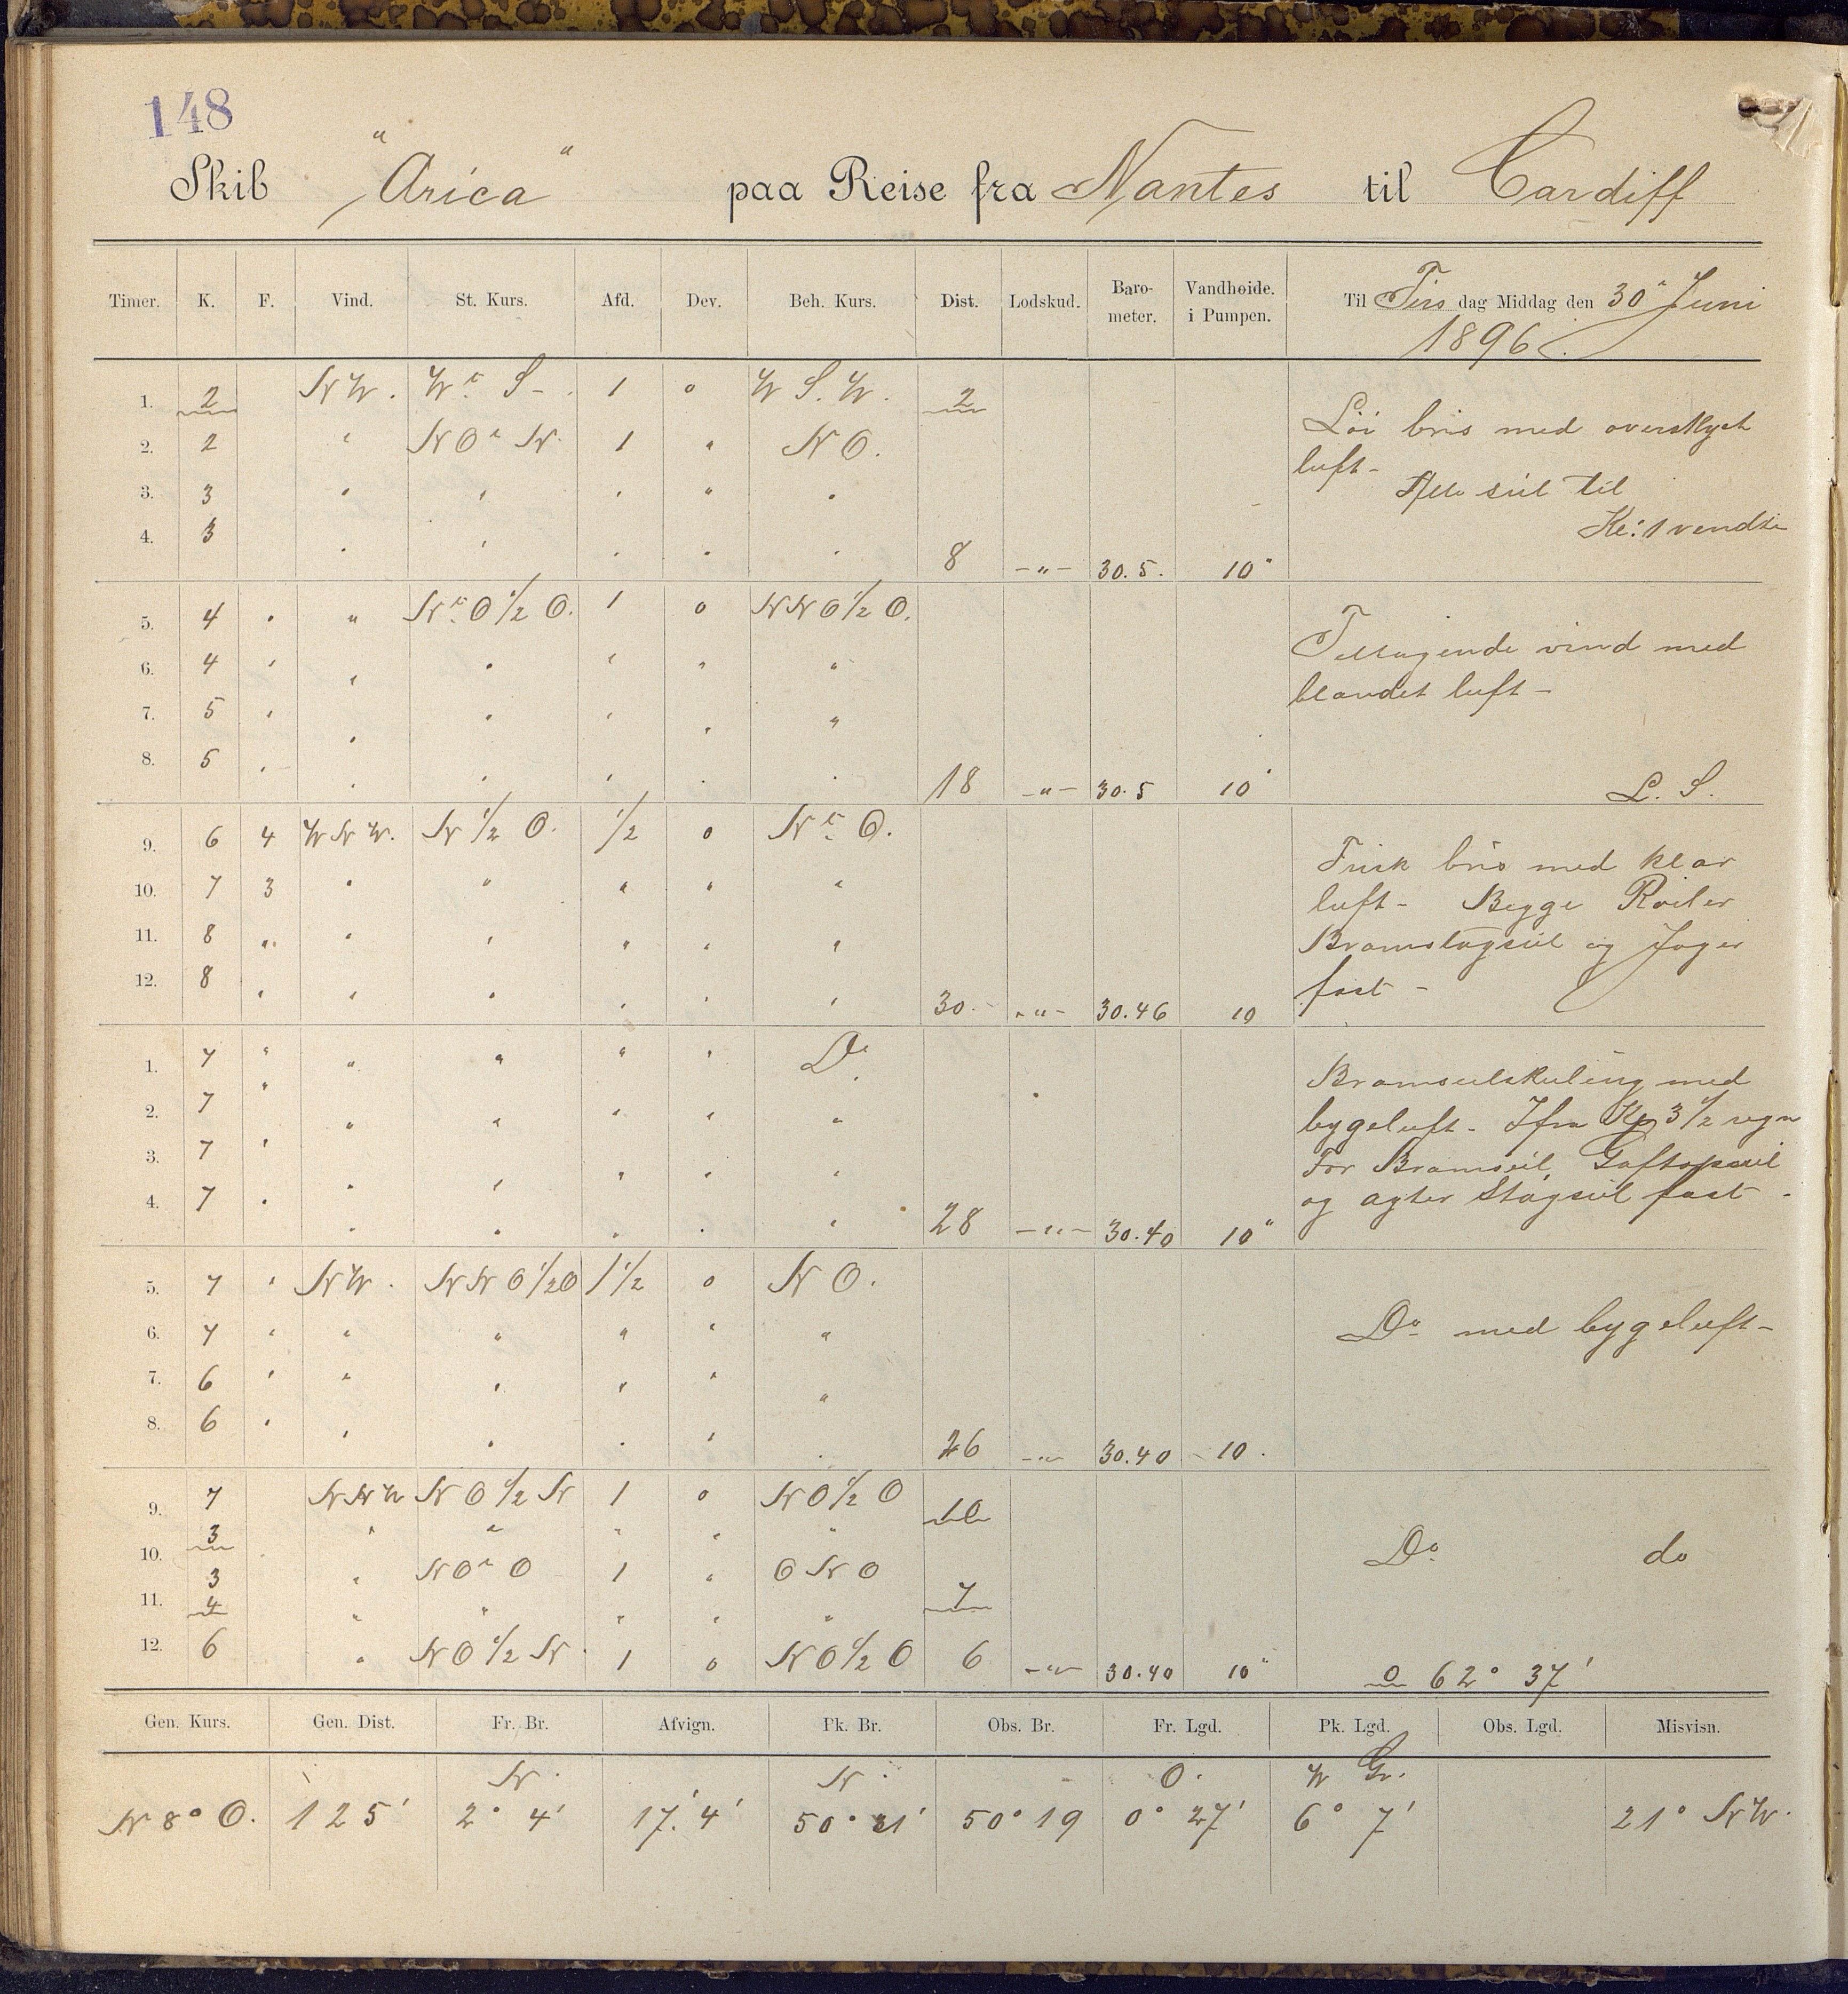 148
Skib "Arica" paa Reise fra Nantes til Cardiff
Timer. K. F. Vind. St. Kurs. Afd. Dev. Beh. Kurs. Dist. Lodskud. Baro-meter. Vandhøide. i Pumpen. Til Tirs dag Middag den 30" Juni
1896.
1. 2 NW. W t. S - 1 0 W S. W. 2
2. 2 " NO t N. 1 " NO.
3. 3 " " " " "
4. 3 " " " " " 8 -"- 30.5. 10"
Löi bris med overskyet
luft -
Alle seil til
Kl: 1 vendte
5. 4 " " N t. O 1/2 O. 1 0 NNO 1/2 O.
6. 4 " " " " " "
7. 5 " " " " " "
8. 5 " " " " " " 18 -"- 30.5 10"
Tiltagende vind med
blandet luft -
L. S.
9. 6 4 WNW. N 1/2 O. 1/2 0 N t. O.
10. 7 3 " " " " "
11. 8 " " " " " "
12. 8 " " " " " " 30 - -"- 30.46 10
Frisk bris med klar
luft - Begge Roiler
Bramstagseil og Jager
fast -
1. 7 " " " " " Do
2. 7 " " " " " "
3. 7 " " " " " "
4. 7 " " " " " " 28 -"- 30.40 10"
Bramseilskuling med
bygeluft - Ifra Kl 3 1/2 regn
For Bramseil, Gaftopseil
og agter Stagseil fast -
5. 7 " NW. NNO 1/2 O 1 1/2 0 NO.
6. 7 " " " " " "
7. 6 " " " " " "
8. 6 " " " " " " 26 -"- 30.40 10.
Do med bygeluft -
9. 7 NNW NO 1/2 N 1 0 NO 1/2 O
10. 3 " " " " " 10
3 " NO t O 1 " ONO
11. 4 " " " " " 7
12. 6 " NO 1/2 N 1 0 NO 1/2 O 6 -"- 30.40 10"
Do do
0 62° 37'
Gen. Kurs. Gen. Dist. Fr. Br. Afvign. Pk. Br. Obs. Br. Fr. Lgd. Pk. Lgd. Obs. Lgd. Misvisn.
N. N. O. W Gr.
N 8° O. 125' 2° 4' 17.'4' 50° 21' 50° 19 0° 27' 6° 7' 21° NW.